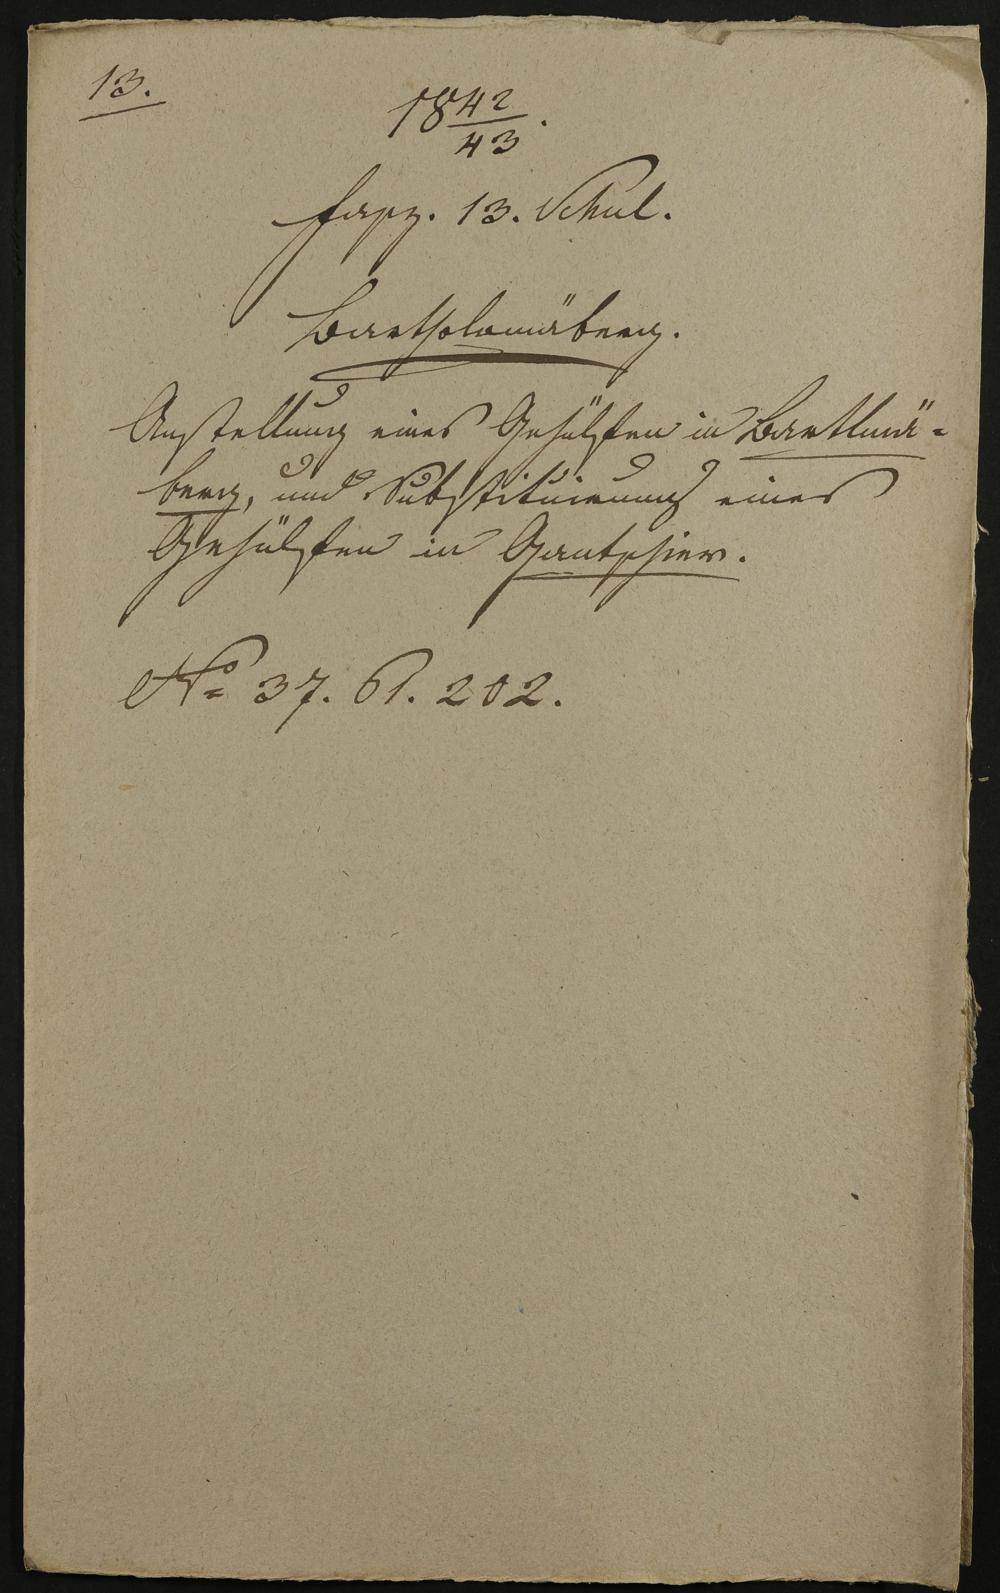 13.
1842/43.
Fasz. 13. Schul.
Bartholomäberg.
Anstellung eines Gehülfen in Bartlmä-
berg, und Substituirung eines
Gehülfen in Gantschier.
No 37. 61. 202.